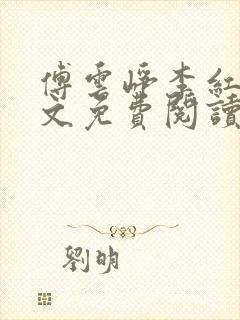 傅雲崢李紅
文免費閱讀
劉明